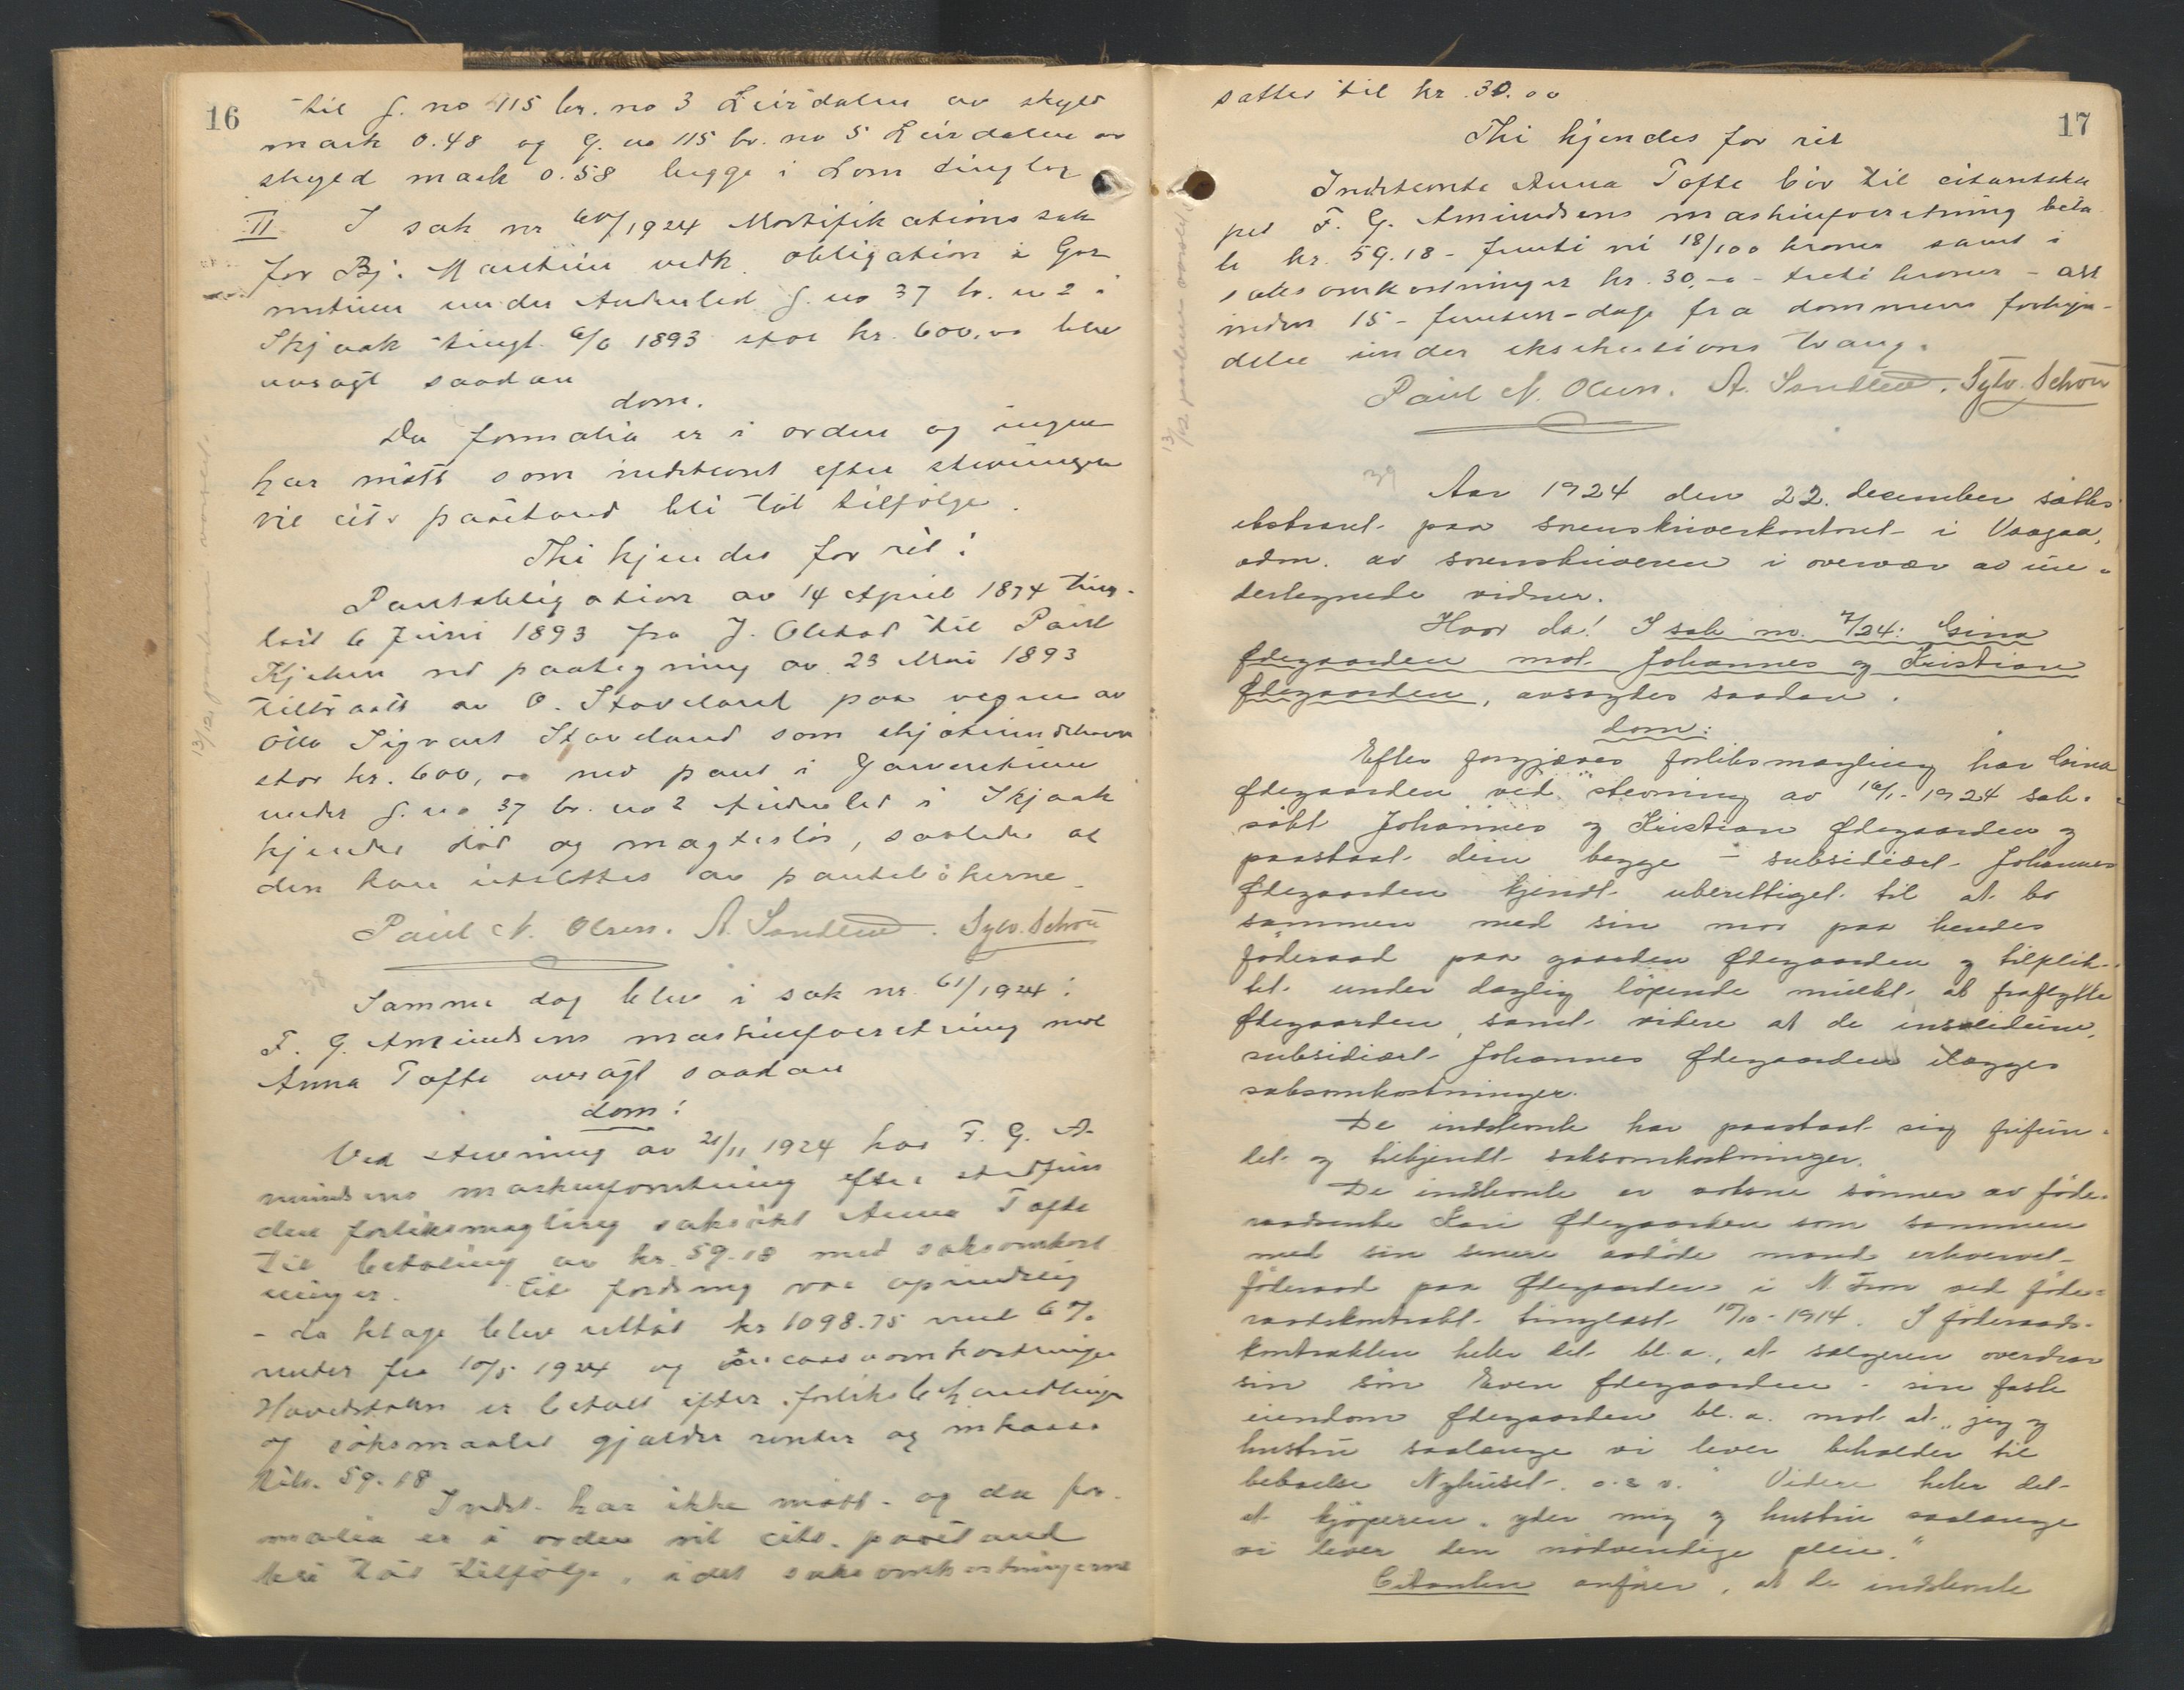 16
til g. no 115 br. no 3 Leirdalen av skyld
mark 0.48 og G. no 115 br. no 5 Leirdalen av
skyld mark 0.58 begge i Lom tinglag
II I sak nr 60/1924 Mortifikations sak
for Bj. Martinu vedk. obligation i Gar
mstuen under Anderled g. no 37 br. no 2 i
Skjaak tingl. 6/6 1893 stor kr. 600,00 blev
avsagt saadan
dom.
Da formalia er i orden og ingen
har mött som indstevnt efter stevningen
vil cit's paastand bli tat tilfölge.
Thi kjendes for ret:
Pantobligation av 14 April 1874 ting-
læst 6 Juni 1893 fra J. Olstad til Paul
Kjeken ved paategning av 23 Mai 1893
tiltraatt av O. Staveland paa vegne av
Otto Sigvart Staveland som skjöteindehaver
stor kr. 600,00 med pant i Garverstuen
under g. no 37 br. no 2 Anderled i Skjaak
kjendes död og magteslös, saaledes at
den kan utslettes av pantebökerne.
Paul N. Olsen. A. Sandlund. Sylv. Schou
38
Samme dag blev i sak nr. 61/1924:
F. G. Amundsens maskinforretning mot
Anna Tofte avsagt saadan
dom:
Ved stevning av 21/11 1924 har F. G. A-
mundsens maskinforretning efter stedfun
den forliksmegling saksökt Anna Tofte
til betaling av kr. 59.18 med saksomkost
ninger. Cits fordring var oprindelig
- da klage blev uttat kr 1098.75 med 6 %
renter fra 10/5 1924 og incassoomkostninger
Hovedstolen er betalt efter forliksbehandlingen
og söksmaalet gjælder renter og inkasso
tils. 59.18
Indst. har ikke mött og da for-
malia er i orden vil cits. paastand
bli tat tilfölge, idet saksomkostningerne
13/12 partene varslet.
17
sættes til kr. 30.00
Thi kjendes for ret
Indstevnte Anna Tofte bör til citantska
pet F. G. Amundsens maskinforretning beta
le kr. 59.18 - femti ni 18/100 kroner samt i
saksomkostninger kr. 30,00 - treti kroner - alt
inden 15 - femten - dage fra dommens forkyn-
delse under eksekutions tvang.
Paul N. Olsen. A. Sandlund. Sylv. Schou
13/12 partene varslet
39
Aar 1924 den 22. december sattes
ekstraret paa sorenskriverkontoret i Vaagaa,
adm. av sorenskriveren i overvær av un-
dertegnede vidner.
Hvor da! I sak nr. 7/24: Gina
Ødegaarden mot Johannes og Kristian
Ødegaarden, avsagdes saadan.
dom:
Efter forgjæves forliksmægling har Gina
Ødegaarden ved stevning av 16/1-1924 sak-
søkt Johannes og Kristian Ødegaarden og
paastaat dem begge - subsidiært Johannes
Ødegaarden kjendt uberettiget til at bo
sammen med sin mor paa hendes
føderaad paa gaarden Ødegaarden og tilplik-
tet under daglig løpende mulkt at fraflytte
Ødegaarden, samt videre at de in solidum,
subsidiært Johannes Ødegaarden ilægges
saksomkostninger.
De indstevnte har paastaat sig frifun-
det og tilkjendt saksomkostninger.
De indstevnte er voksne sønner av føde-
raadsenke Kari Ødegaarden som sammen
med sin senere avdøde mand erhvervet
føderaad paa Ødegaarden i N. Fron ved føde-
raadskontrakt tinglæst 17/10-1914. I føderaads-
kontrakten heter det bl.a., at sælgeren overdrar
sin søn Even Ødegaarden - sin faste
eiendom Ødegaarden bl.a. mot at „jeg og
hustru saalænge vi lever beholder til
beboelse Nyhuset o.s.v." Videre heter det
at kjøperen „yder mig og hustru saalænge
vi lever den nødvendige pleie."
Citanten anfører, at de indstevnte